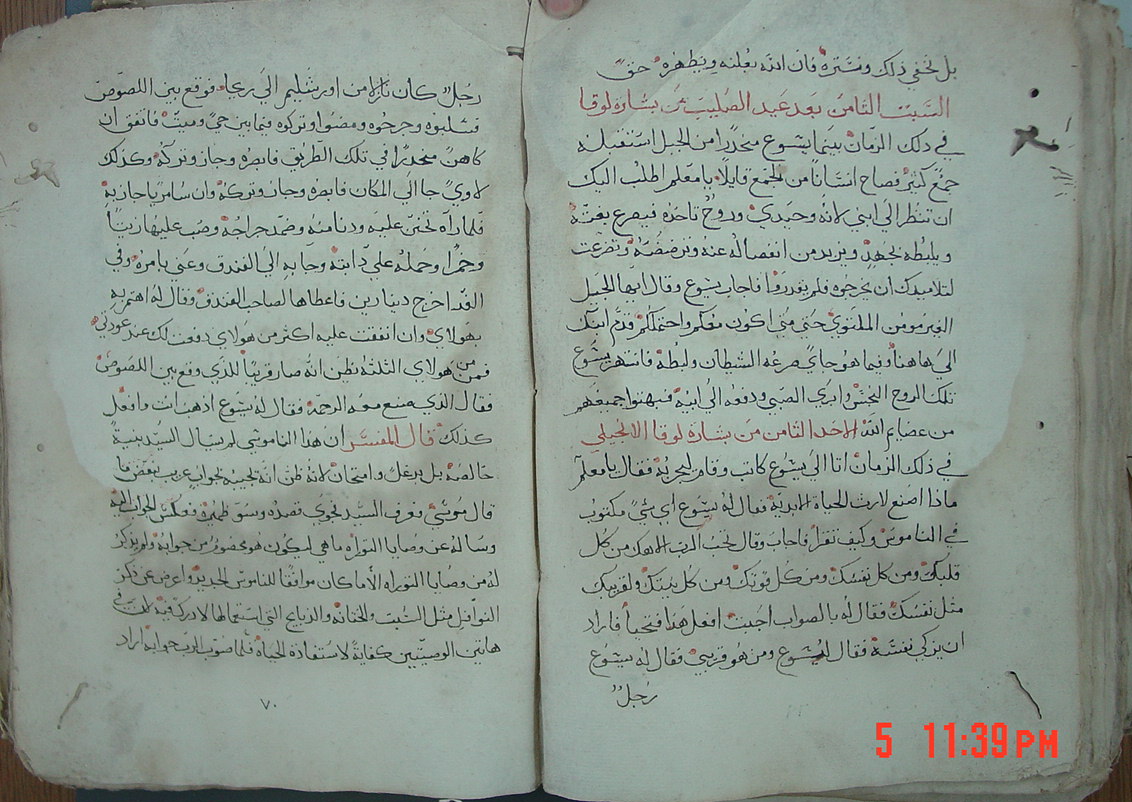 بل نخفي ذلك ونستره فان الله يعلنه ويظهره حق
السبت الثامن بعد عيد الصليب من بشارة لوقا
في ذلك الزمان بينما يشوع منحدرا من الجبل استقبله
جمع كثير فصاح انسانا من الجمع قايلا يا معلم اطلب اليك
ان تنظر الى ابني لانه وحيدي وروح تاخذه فيصرع بغتة
ويلبطه بجهد ويزبد من انفصاله عنه وترضضه وتضرعت
لتلاميذك ان يخرجوه فلم يقدروا فاجاب يشوع وقال ايها الجيل
الغير مومن الملتوي حتى متى اكون معكم واحتملكم قدم ابنك
الي هاهنا وفيما هو جاي صرعه الشيطان ولبطه فانتهر يشوع
تلك الروح النجس وابرى الصبي ودفعه الى ابيه فبهتوا جميعهم
من عضايم الله الاحد الثامن من بشارة لوقا الانجيلي
في ذلك الزمان اتا الى يشوع كاتب وقام ليجربه فقال يا معلم
ماذا اصنع لارث الحياه الابدية فقال له يشوع اي شي مكتوب
في الناموس وكيف تقرا فاجاب وقال تحب الرب الاهك من كل
قلبك ومن كل نفسك ومن كل قوتك ومن كل نيتك ولقريبك
مثل نفسك فقال له بالصواب اجبت افعل هذا فتحيا فاراد
ان يزكي نفسه فقال ليشوع ومن هو قريبي فقال له يشوع
رجل
رجل كان نازلا من اورشليم الى ريحا فوقع بين اللصوص
فسلبوه وجرحوه ومضوا وتركوه فيما بين حي وميت فاتفق ان
كاهن منحدرا في تلك الطريق فابصره وجاز وتركه وكذلك
لاوي جا الى المكان فابصره وجاز وتركه وان سامريا جاز به
فلما راه تحنن عليه ودنا منه وضمد جراحه وصب عليها زيتا
وخمرا وحمله علي دابته وجا به الى الفندق وعني بامره وفي
الغد اخرج دينارين فاعطاها لصاحب الفندق وقال له اهتم به
بهولاي وان انفقت عليه اكثر من هولاي دفعت لك عند عودتي
فمن من هولاي الثلثة تظن انه صار قريبا للذي وقع بين اللصوص
فقال الذي صنع معه الرحمة فقال له يشوع اذهب انت وافعل
كذلك قال المفسر ان هذا الناموسي لم يسال السيد بنية
خالصه بل بزغل وامتحان لانه ظن انه يجيبه بجواب غريب بعض ما
قال موسى فعرف السيد فحوى قصده وسو ظميره فعكس الجواب اليه
وساله عن وصايا التوراه ما هي ليكون هو محضور من جوابه ولم يذكر
له من وصايا التوراه الا ما كان موافقا للناموس الجديد واعرض عن ذكر
النوافل مثل السبت والختانه والذبايح التي استعمالها لا درك فيه لان في
هاتين الوصيتين كفاية لاستفادة الحياه فلما صوب الرب جوابه اراد
٧٠
5 11:39 PM